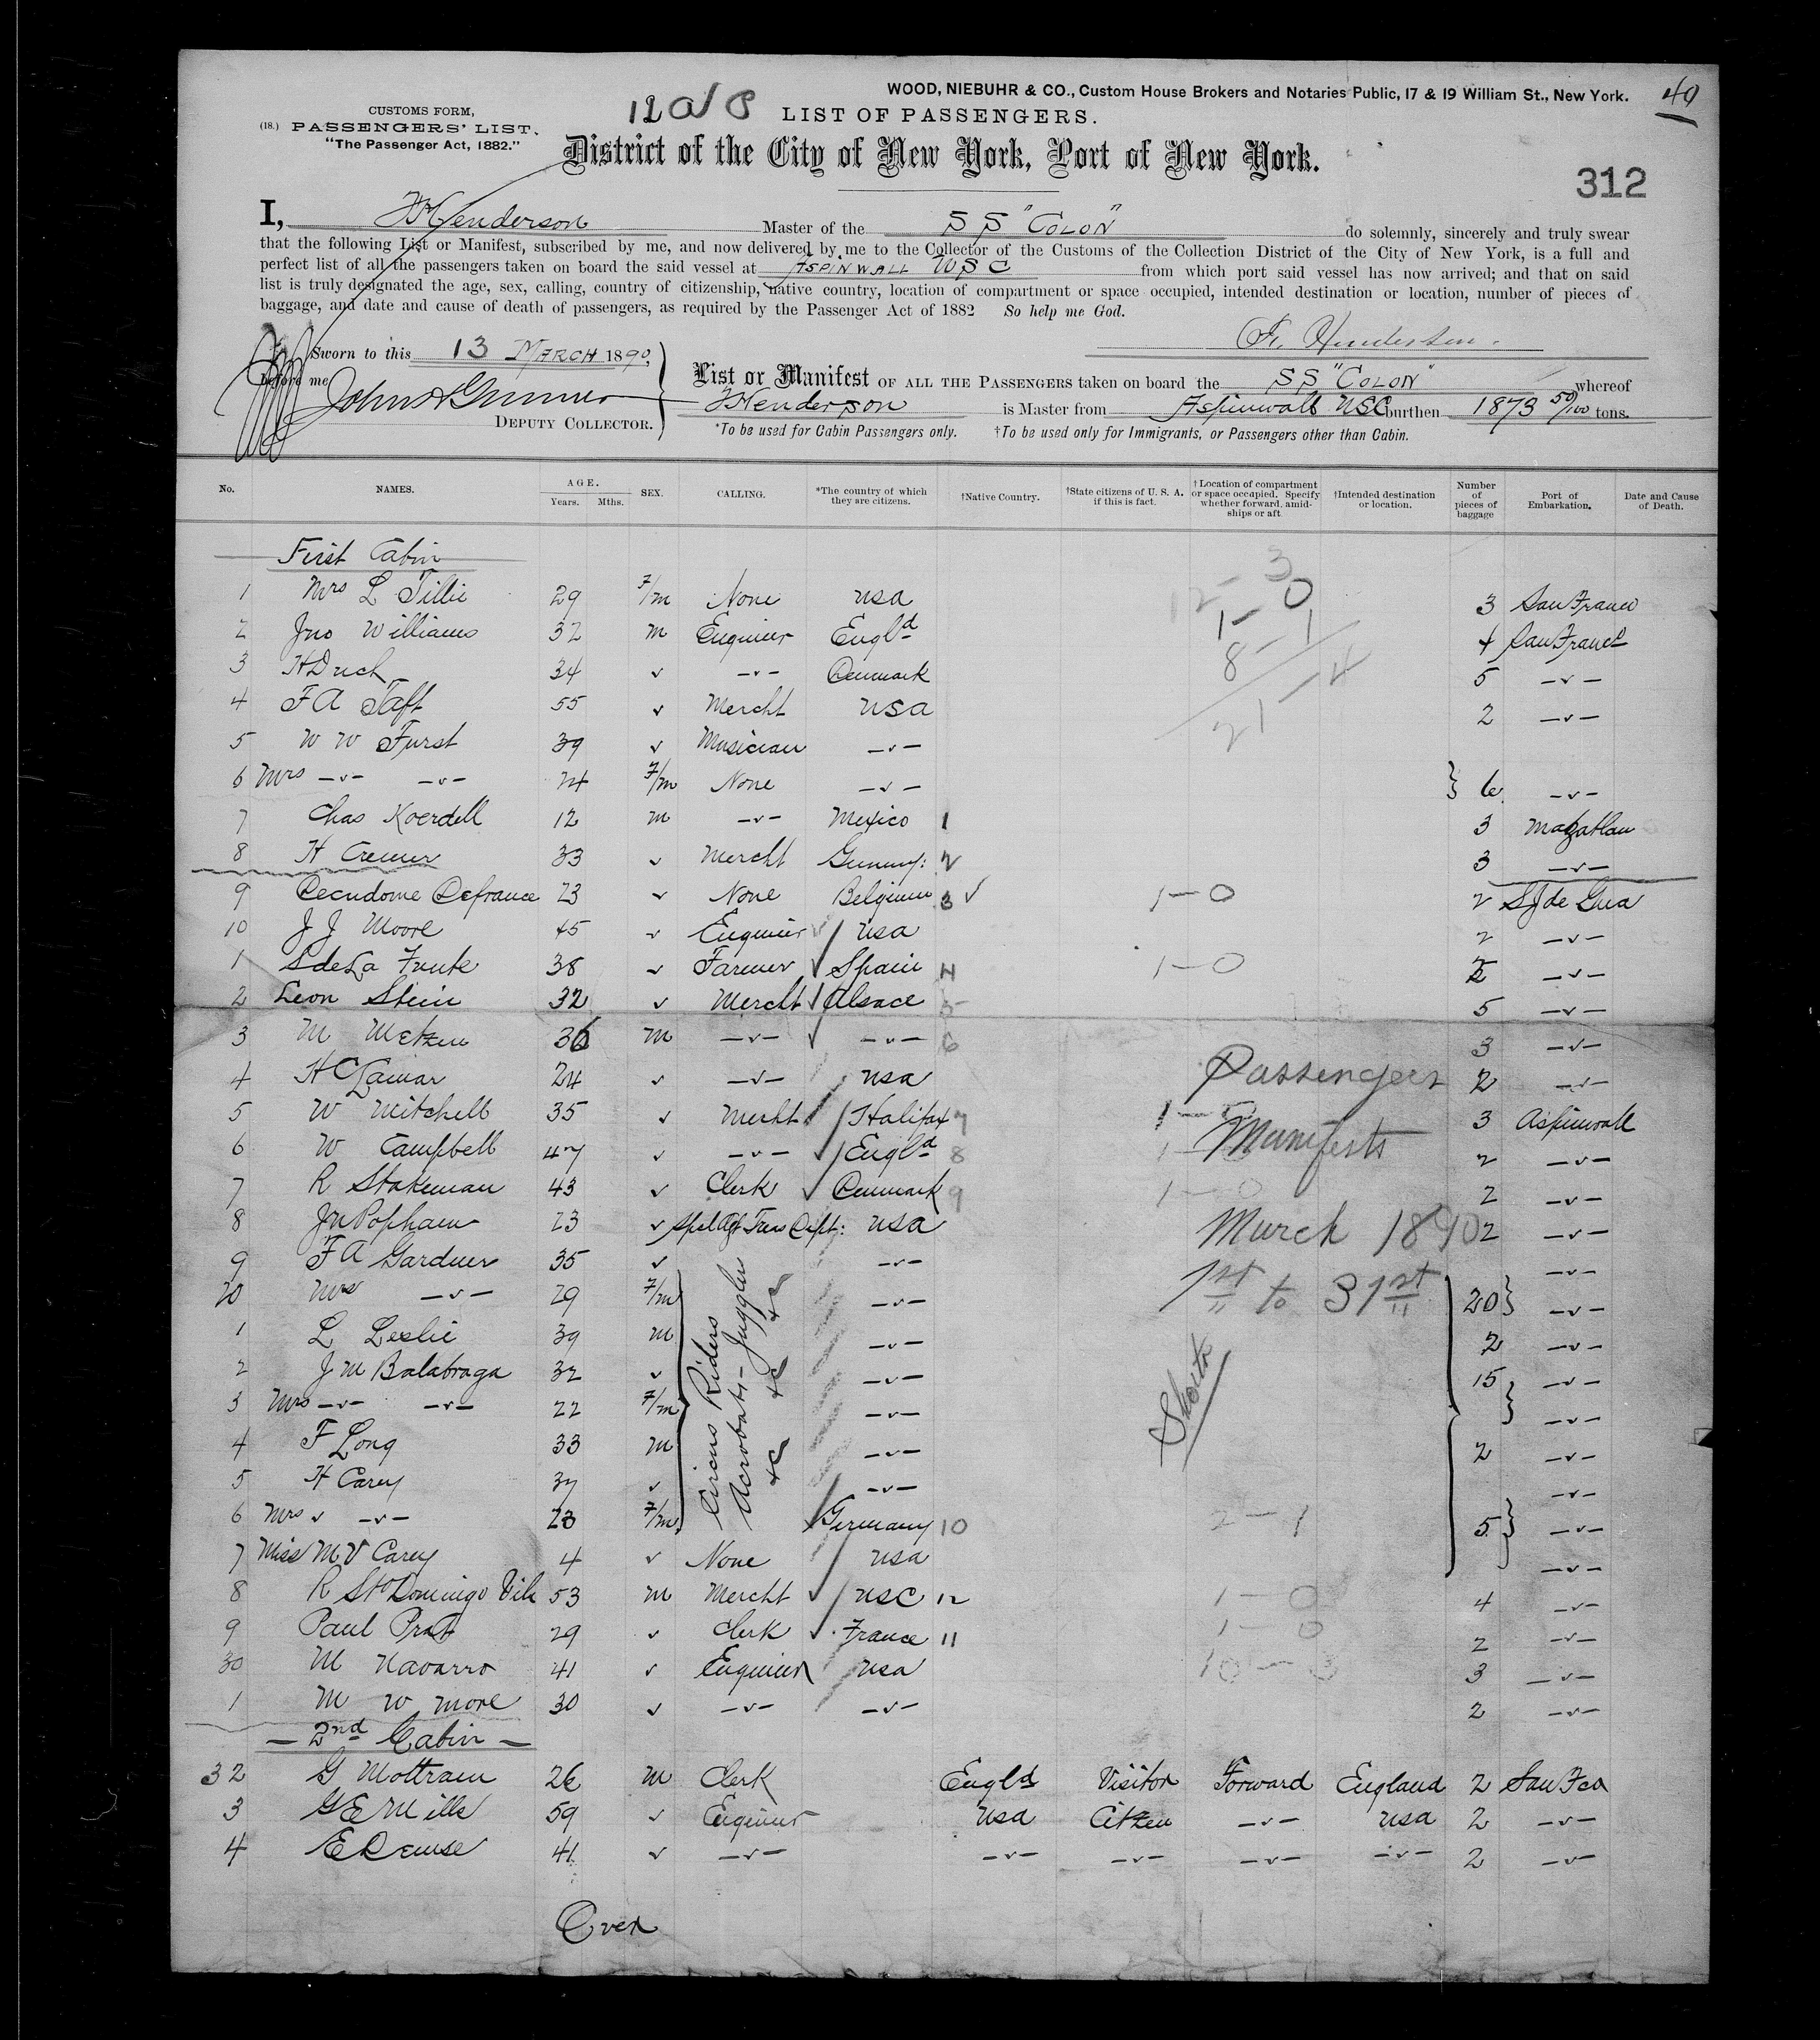 WOOD, NIEBUHR & CO., Custom House Brokers and Notaries Public, 17 & 19 William St., New York. 40
CUSTOMS FORM,
(18.) PASSENGERS' LIST.
"The Passenger Act, 1882."
LIST OF PASSENGERS.
District of the City of New York, Port of New York.
312
I, Henderson Master of the SS "Colon" do solemnly, sincerely and truly swear
that the following List or Manifest, subscribed by me, and now delivered by me to the Collector of the Customs of the Collection District of the City of New York, is a full and
perfect list of all the passengers taken on board the said vessel at Aspinwall USC from which port said vessel has now arrived; and that on said
list is truly designated the age, sex, calling, country of citizenship, native country, location of compartment or space occupied, intended destination or location, number of pieces of
baggage, and date and cause of death of passengers, as required by the Passenger Act of 1882 So help me God.
Henderson
Sworn to this 13 March 1890,
before me
DEPUTY COLLECTOR.
List or Manifest OF ALL THE PASSENGERS taken on board the SS "Colon" whereof
Henderson is Master from Aspinwall USC burthen 1873 50/100 tons.
*To be used for Cabin Passengers only. †To be used only for Immigrants, or Passengers other than Cabin.
No. NAMES. AGE. Years. Mths. SEX. CALLING. *The country of which they are citizens. †Native Country. †State citizens of U. S. A. if this is fact. †Location of compartment or space occupied. Specify whether forward, amidships or aft †Intended destination or location. Number of pieces of baggage Port of Embarkation. Date and Cause of Death.
First Cabin
1 Mrs L Tillie 29 F/m None USA 3 San Franco
2 Jno Williams 32 m Engineer Engld 4 San Franco
3 34 v -v- Denmark 5 -v-
4 F A Taft 55 v Mercht USA 2 -v-
5 W W Furst 39 v Musician -v-
6 Mrs -v- -v- 24 F/m None -v- 6 -v-
7 Chas Koerdell 12 m -v- Mexico 1 3 Mazatlan
8 H Cremer 33 v Mercht Germny: 2 3 -v-
9 Defrance 23 v None Belgium 3 1-0 2 SJ de Gua
10 J J Moore 45 v Engineer USA 2 -v-
1 S de La Fuente 38 v Farmer Spain 4 1-0 -v-
2 Leon Stein 32 v Mercht Alsace 5 5 -v-
3 M Metzen 36 m -v- -v- 6 3 -v-
4 H C Lamar 24 v -v- USA 2 -v-
5 W Mitchell 35 v Mercht Halifax 7 3 Aspinwall
6 W Campbell 47 v -v- Engld 8 2 -v-
7 R Stakeman 43 v Clerk Denmark 9 1-0 2 -v-
8 Popham 23 v Spel Agt Treas Dept: USA 2 -v-
9 F A Gardner 35 v -v- -v-
20 Mrs -v- 29 F/m -v- 20 -v-
1 L Leslie 39 m -v- 2 -v-
2 J M Balabraga 32 v -v- 15 -v-
3 Mrs -v- -v- 22 F/m -v- -v-
4 F Long 33 m -v- 2 -v-
5 H Carey 37 v -v- -v-
6 Mrs v -v- 23 F/m Germany 10 2-1 5 -v-
7 Miss M V Carey 4 v None USA -v-
8 R Sto Domingo Vila 53 m Mercht USC 12 1-0 4 -v-
9 Paul Prat 29 v Clerk France 11 1-0 2 -v-
30 M Navarro 41 v Engineer USA 10-3 3 -v-
1 M W More 30 v -v- -v- 2 -v-
Circus Riders
Acrobats- Juggler
&c &c &c
Passengers
Manifests
March 1890
1st to 31st
- 2nd Cabin -
32 G Mottram 26 m Clerk Engld Visitor Forward England 2 San Fco
3 G E Mills 59 v Engineer USA Citzen -v- USA 2 -v-
4 E Dense 41 v -v- -v- -v- -v- -v- 2 -v-
Over